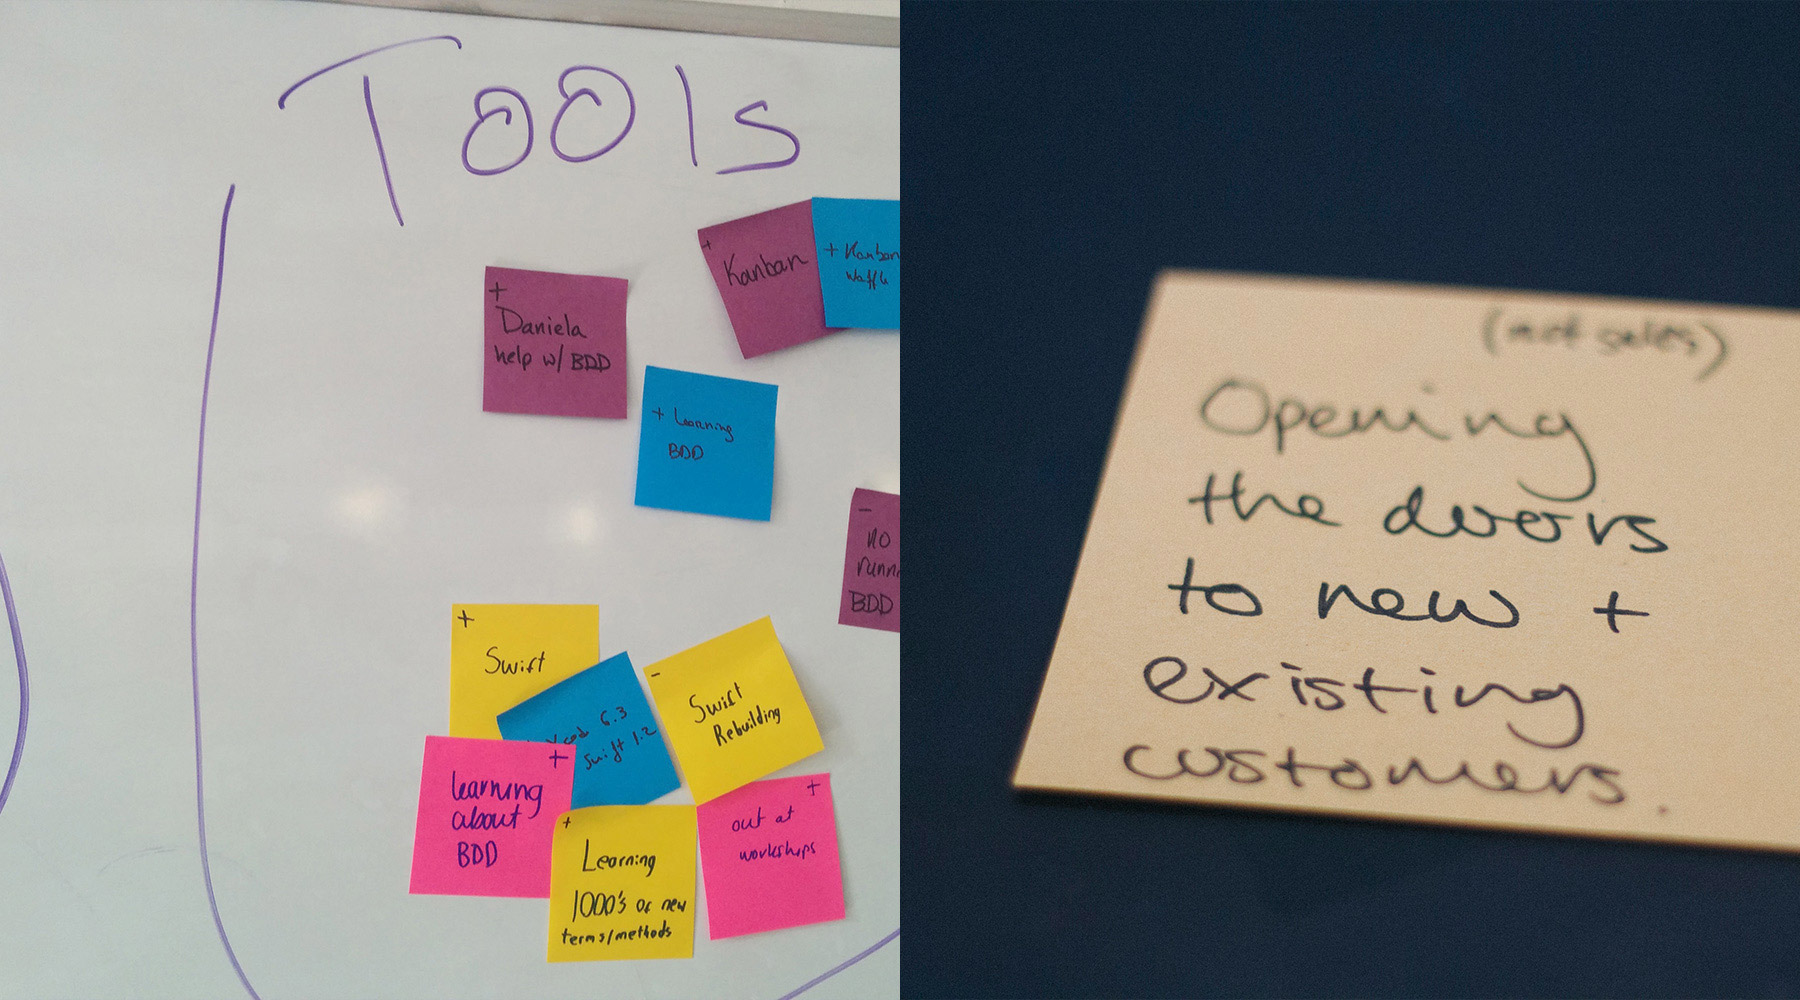 Tools
+
Kanban
+ Kanban
waffle
+
Daniela
help w/ BDD
+ Learning
BDD
-
no
BDD
+
Swift
6.3
Swift 1.2
-
Swift
Rebuilding
+
learning
about
BDD
+
Learning
1000's of new
terms/methods
+
out at
workshops
(not sales)
Opening
the doors
to new +
existing
customers.